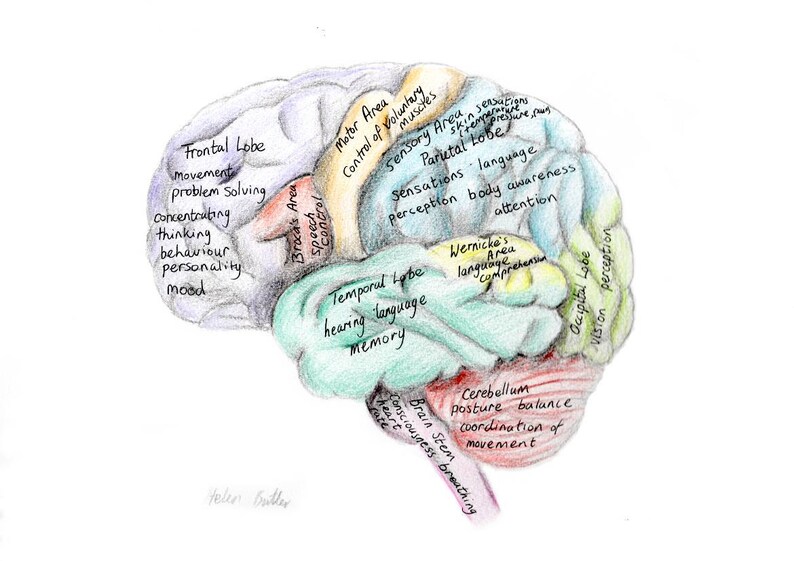 Frontal Lobe
movement
problem solving
concentrating
thinking
behaviour
personality
mood
Broca's Area
speech
control
Motor Area
Control of voluntary
muscles
Sensory Area
skin sensations
(temperature
pressure, pain)
Parietal Lobe
sensations · language
perception body awareness
attention
Wernicke's
Area
language
comprehension
Temporal Lobe
hearing · language
memory
Occipital Lobe
Vision perception
Cerebellum
posture balance
coordination of
movement
Brain Stem
consciousness breathing
heart
rate
Helen Butler